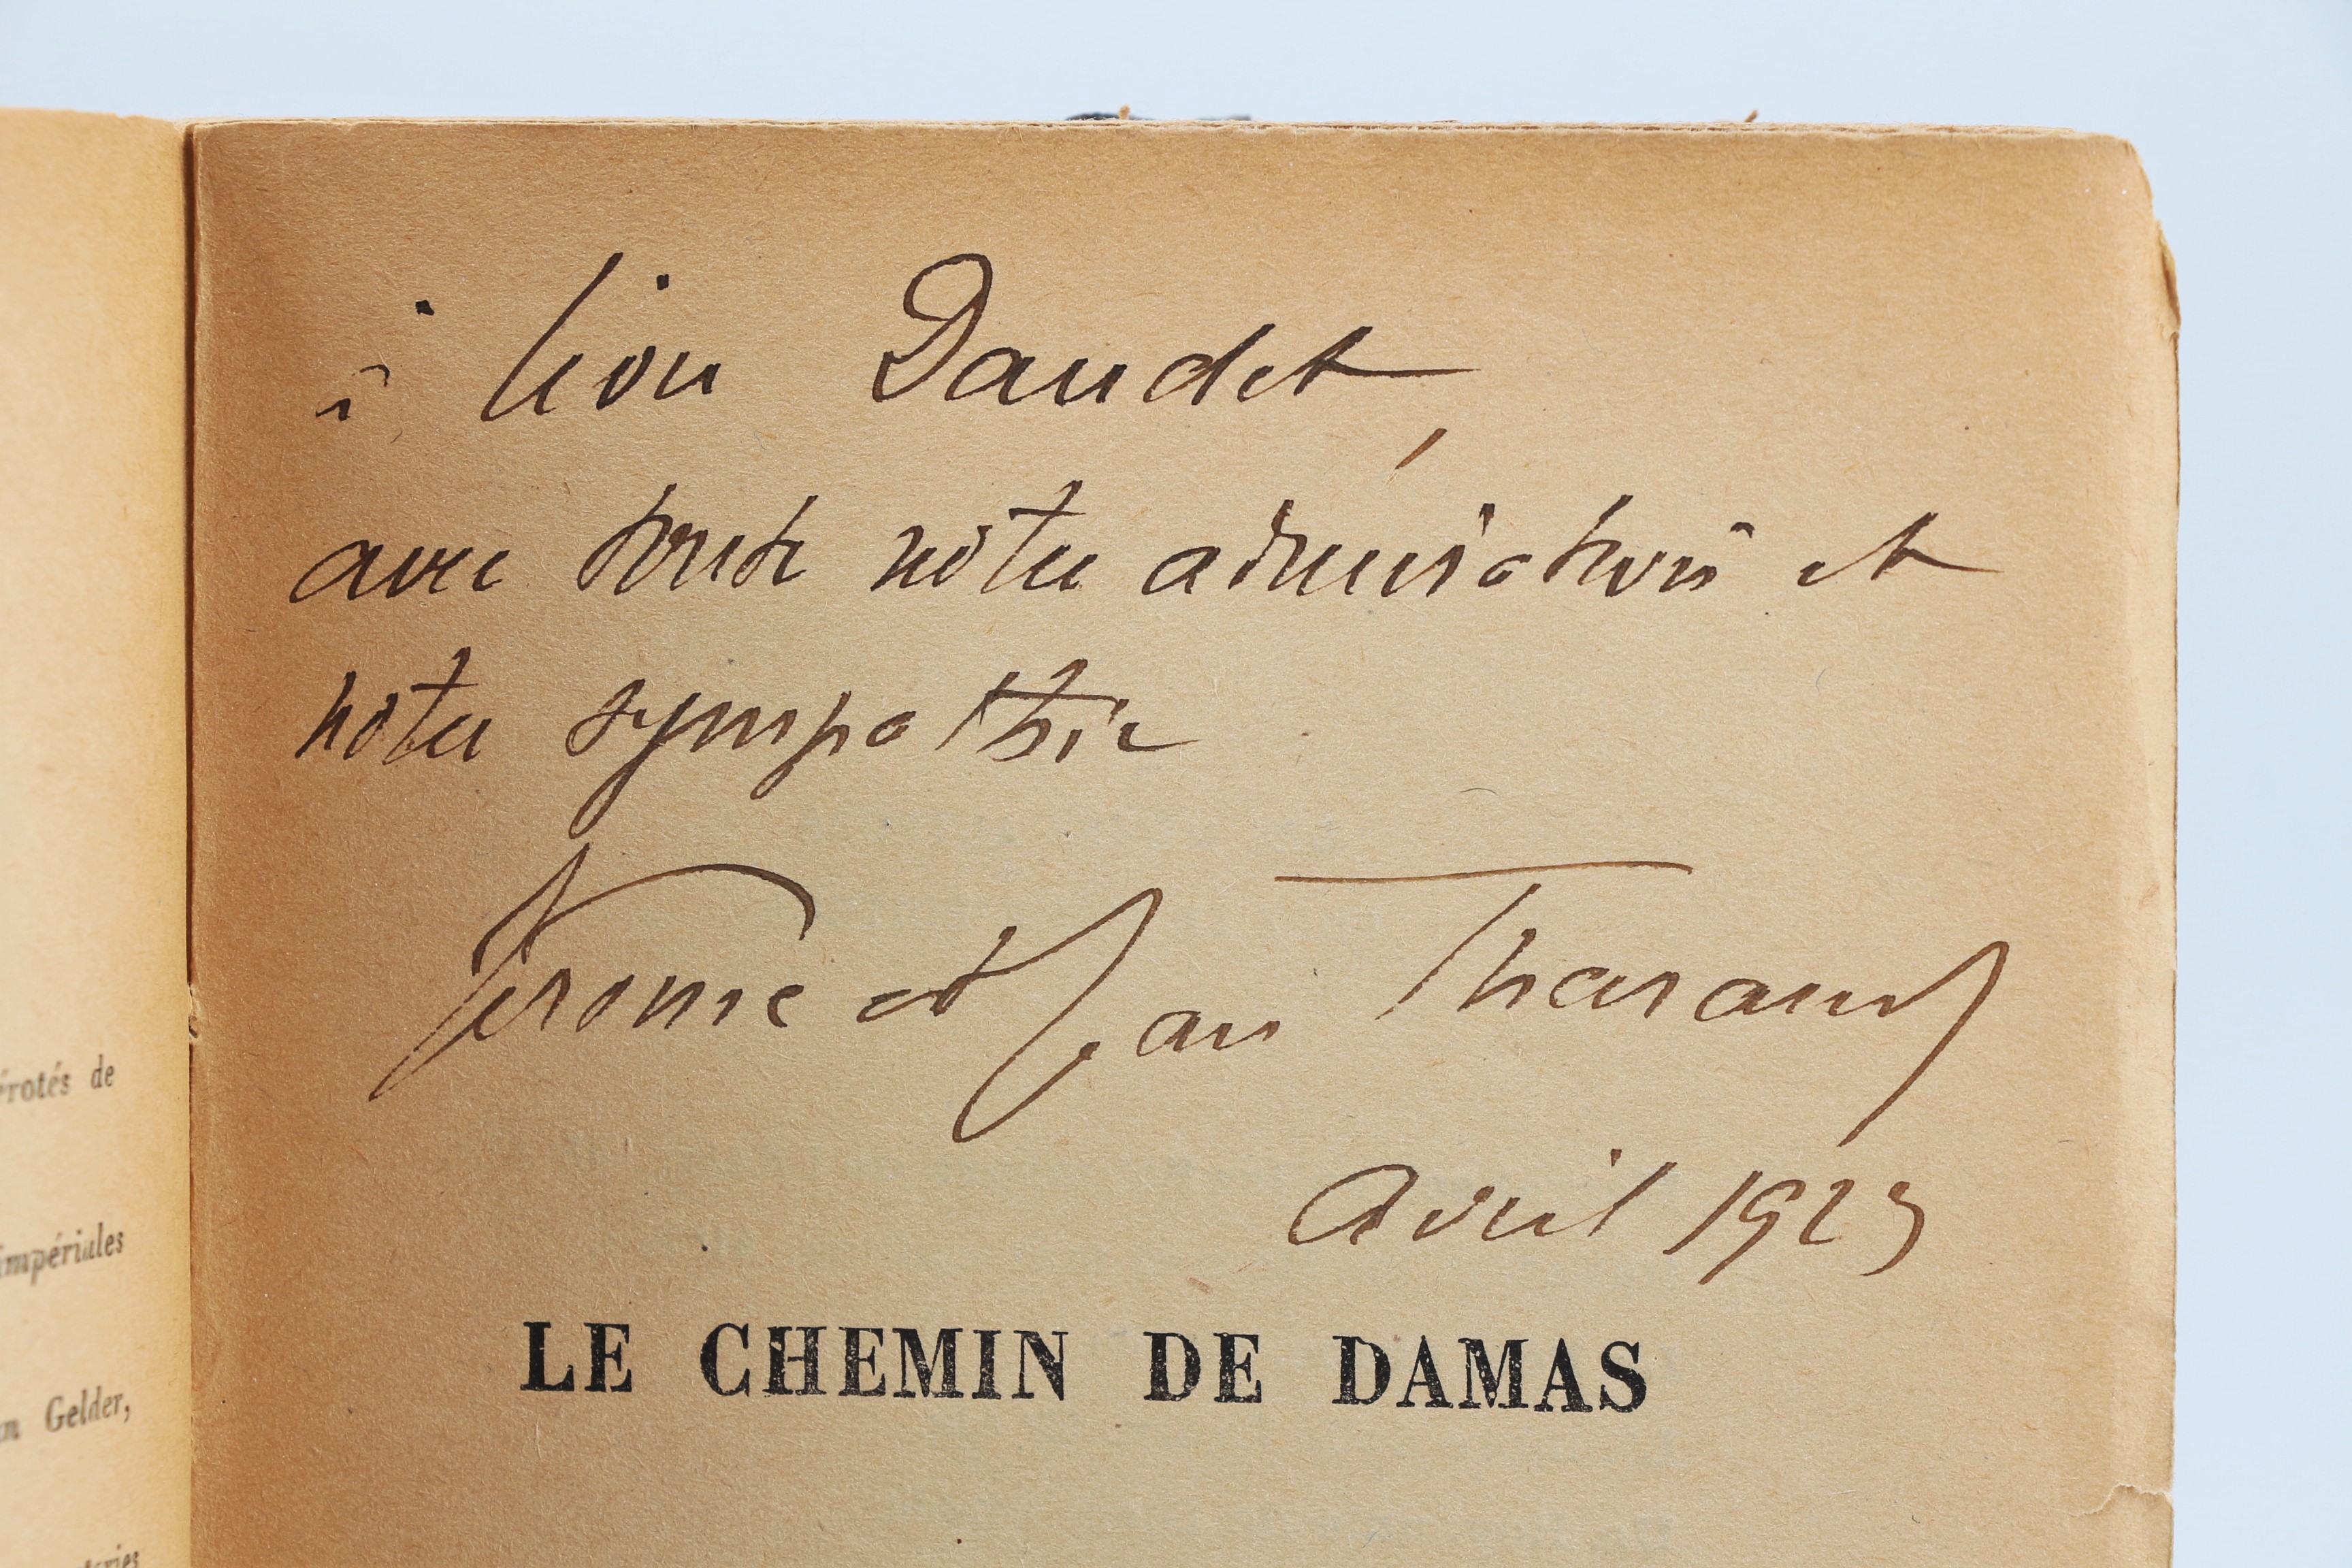 à Léon Daudet
avec toute notre admiration et
notre sympathie
Jérome et Jean Tharaud
Avril 1923
LE CHEMIN DE DAMAS
érotés de
impériales
Gelder,